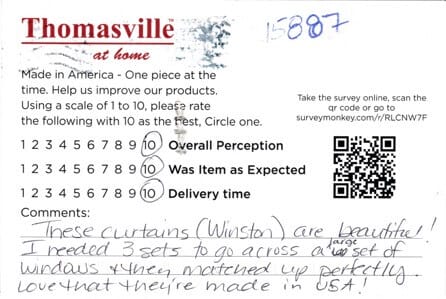 Thomasville
at home
15887
Made in America - One piece at the
time. Help us improve our products.
Using a scale of 1 to 10, please rate
the following with 10 as the best, Circle one.
Take the survey online, scan the
qr code or go to
surveymonkey.com/r/RLCNW7F
1 2 3 4 5 6 7 8 9 10 Overall Perception
1 2 3 4 5 6 7 8 9 10 Was Item as Expected
1 2 3 4 5 6 7 8 9 10 Delivery time
Comments:
These curtains (Winston) are beautiful!
I needed 3 sets to go across a large set of
windows & they matched up perfectly.
Love that they're made in USA!